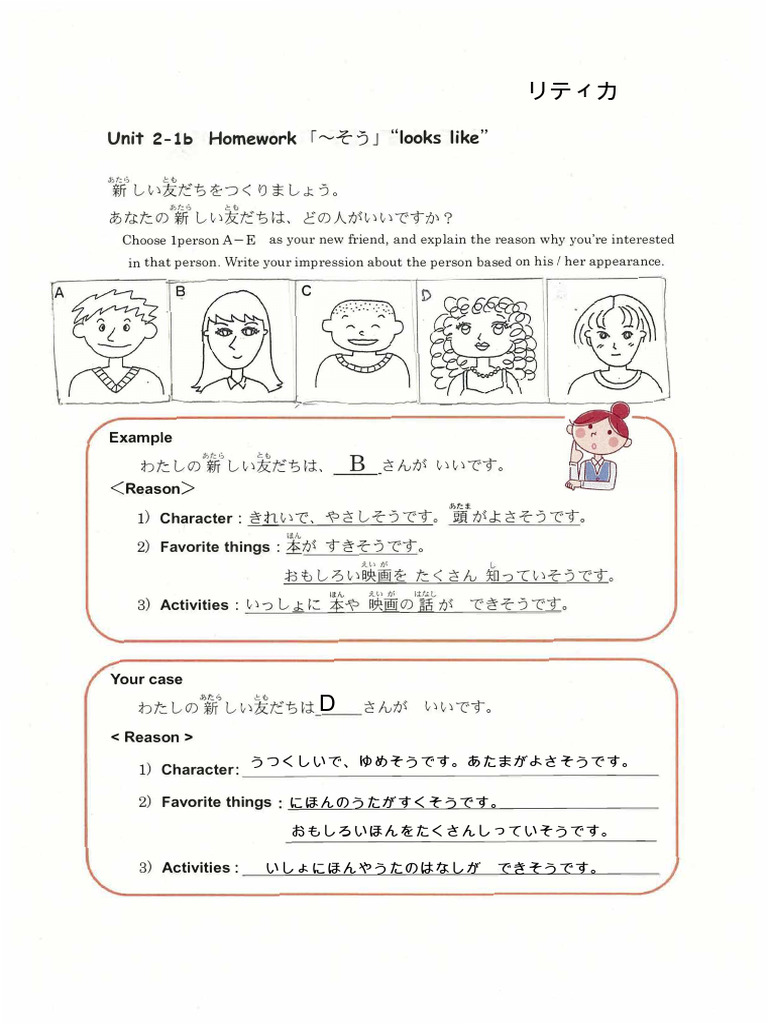 リティカ
Unit 2-1b Homework「～そう」“looks like”
あたら とも
新しい友だちをつくりましょう。
あたら とも
あなたの新しい友だちは、どの人がいいですか？
Choose 1person A－E as your new friend, and explain the reason why you’re interested
in that person. Write your impression about the person based on his / her appearance.
A B C D
Example
あたら とも
わたしの新しい友だちは、 B さんが いいです。
＜Reason＞
あたま
1) Character：きれいで、やさしそうです。 頭がよさそうです。
ほん
2) Favorite things：本が すきそうです。
えいが し
おもしろい映画を たくさん 知っていそうです。
ほん えいが はなし
3) Activities：いっしょに 本や 映画の 話が できそうです。
Your case
あたら とも
わたしの新しい友だちは D さんが いいです。
< Reason >
1) Character: うつくしいで、ゆめそうです。あたまがよさそうです。
2) Favorite things：にほんのうたがすくそうです。
おもしろいほんをたくさんしっていそうです。
3) Activities : いしょにほんやうたのはなしが できそうです。